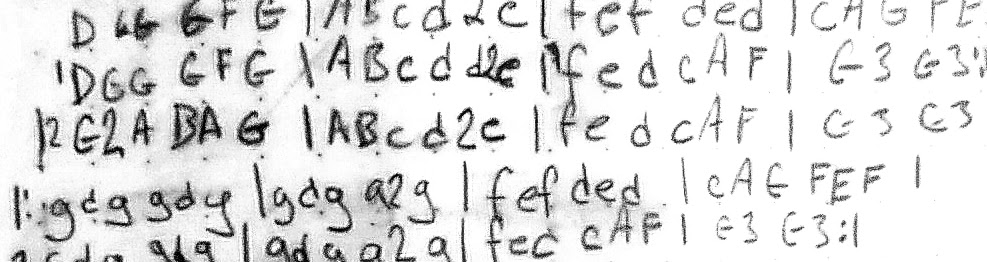 D GG GFG | ABc d2c | fef ded | cAG FE
'DGG GFG | ABc d2e | fed cAF | G3 G3:|
|2 G2A BAG | ABc d2c | fed cAF | G3 G3
|: gdg gdg | gdg a2g | fef ded | cAG FEF |
gdg | gdg a2g | fed cAF | G3 G3:|